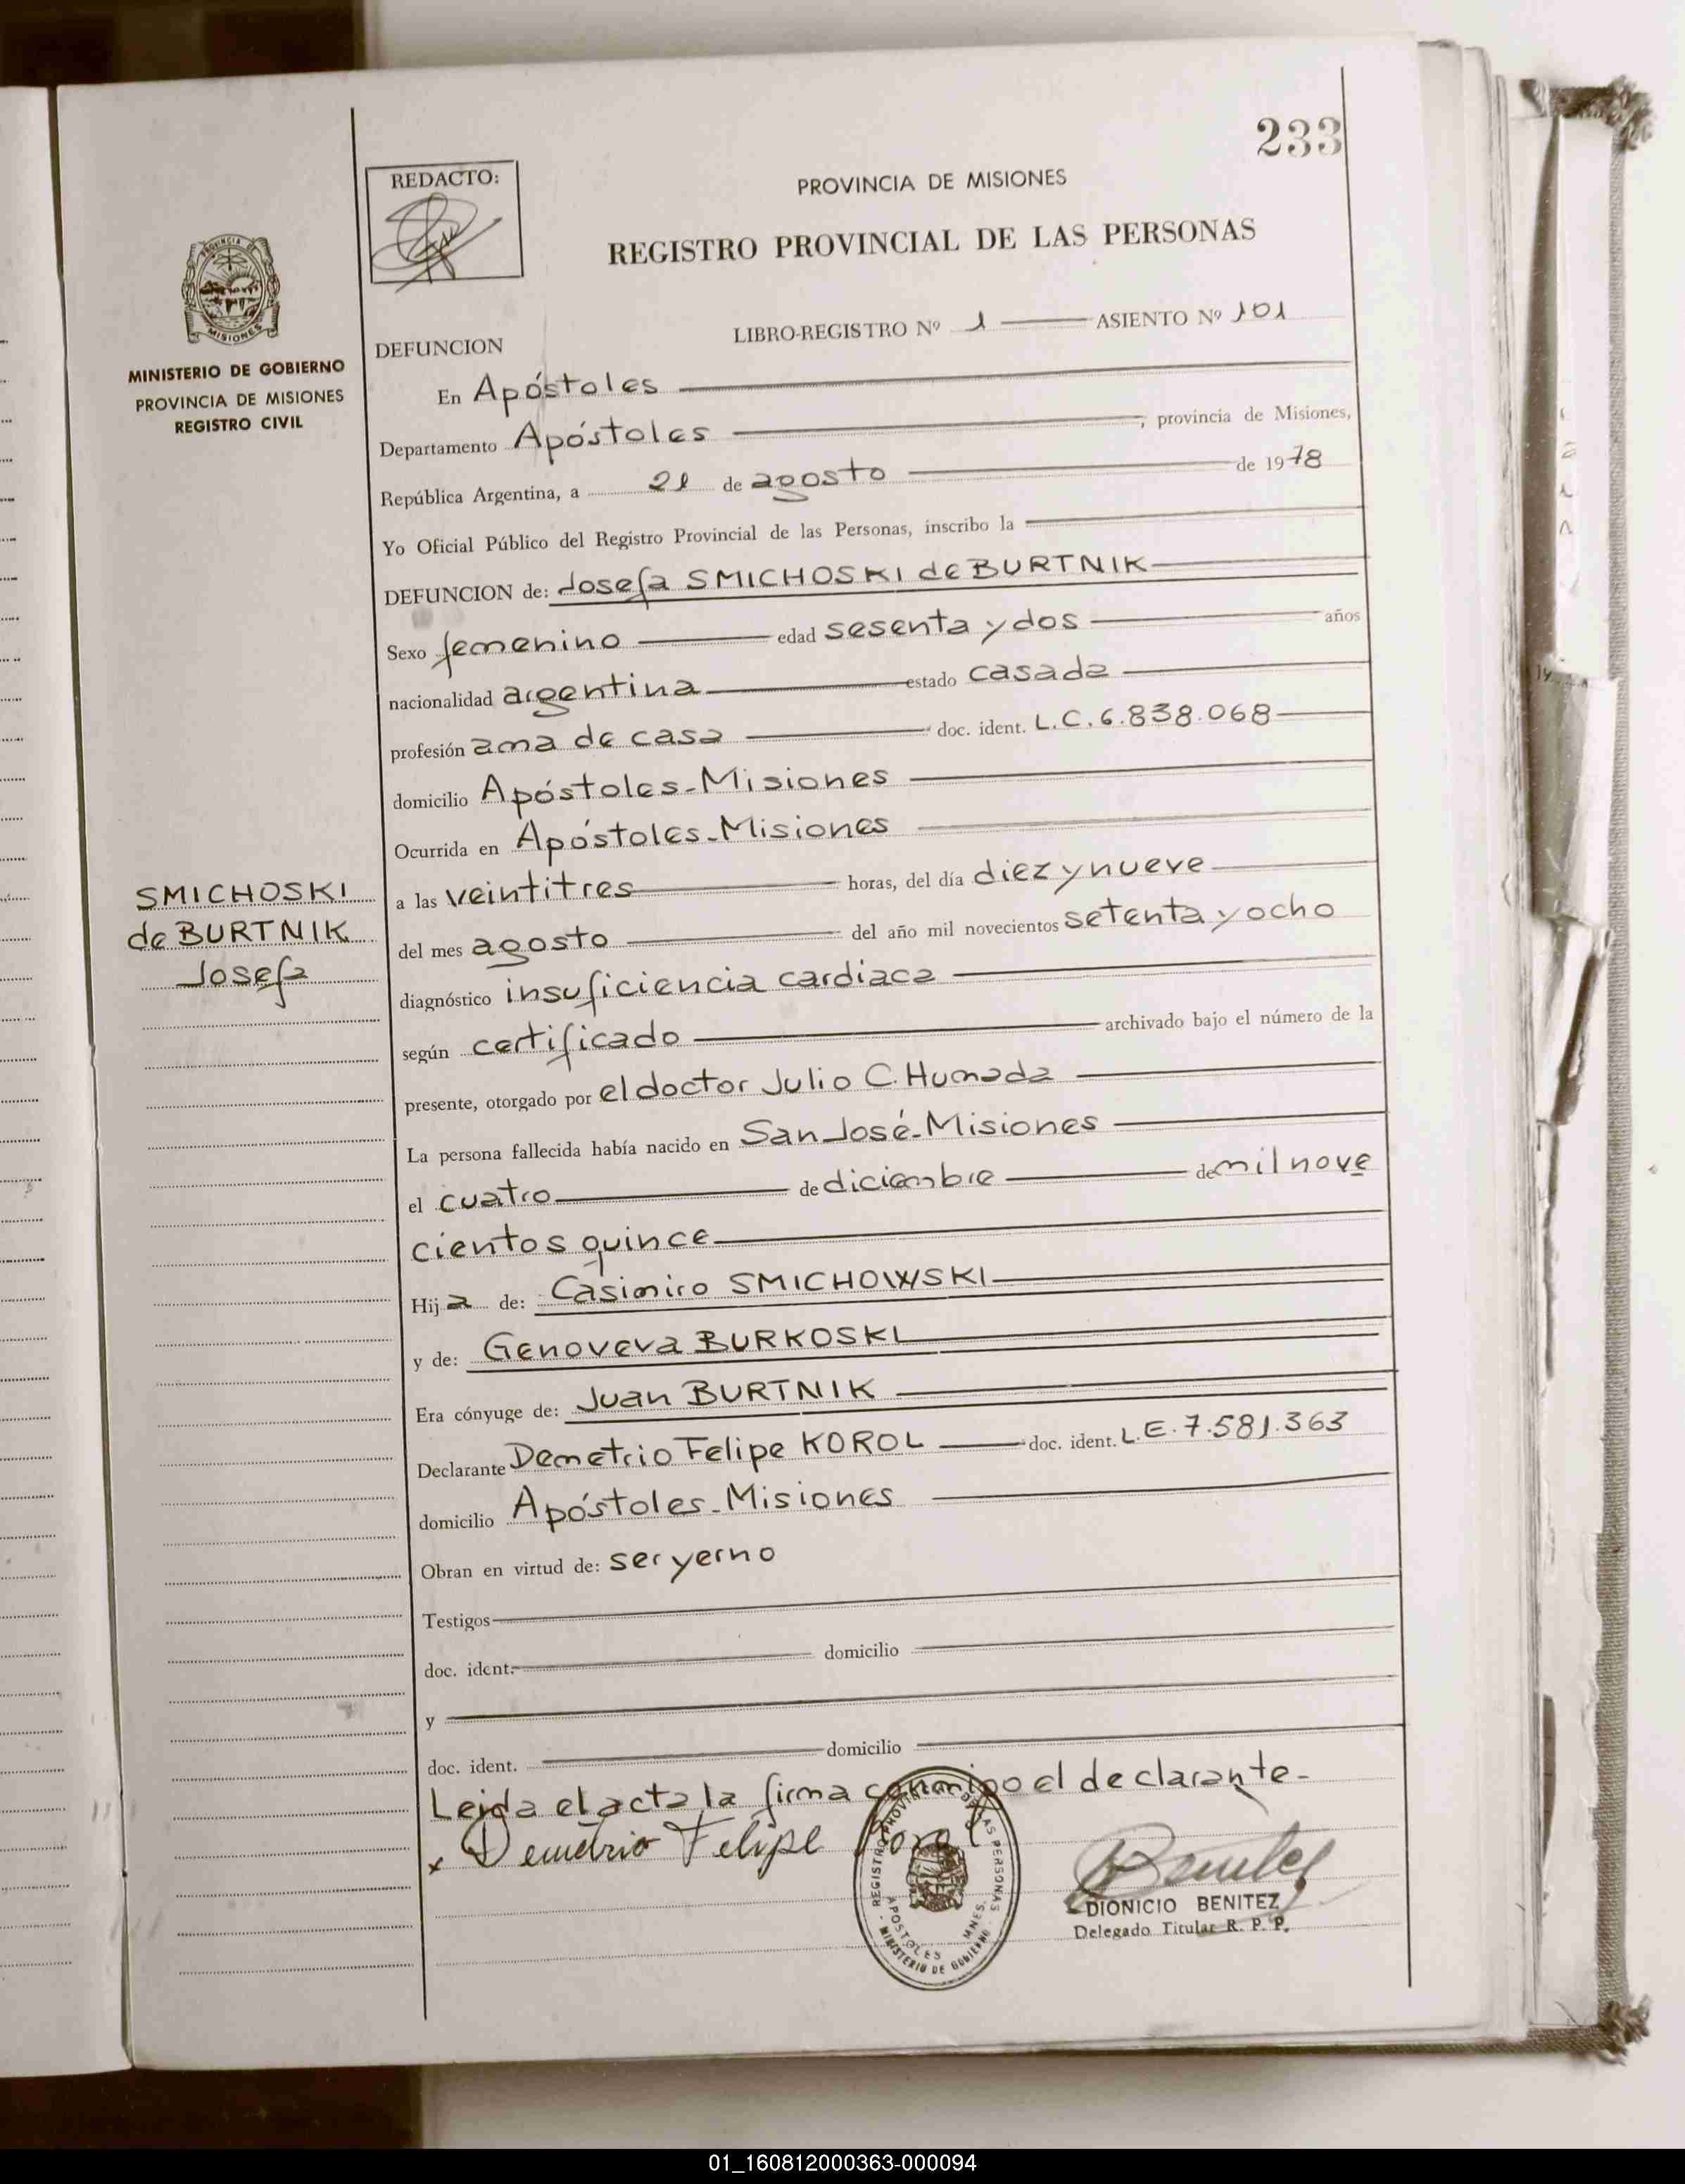 233
REDACTO:
PROVINCIA DE MISIONES
REGISTRO PROVINCIAL DE LAS PERSONAS
PROVINCIA DE
MISIONES
MINISTERIO DE GOBIERNO
PROVINCIA DE MISIONES
REGISTRO CIVIL
LIBRO-REGISTRO Nº 1 ASIENTO Nº 101
DEFUNCION
En Apóstoles
Departamento Apóstoles, provincia de Misiones,
República Argentina, a 21 de agosto de 1978
Yo Oficial Público del Registro Provincial de las Personas, inscribo la
DEFUNCION de: Josefa SMICHOSKI de BURTNIK
Sexo femenino edad sesenta y dos años
nacionalidad argentina estado casada
profesión ama de casa doc. ident. L.C. 6.838.068
domicilio Apóstoles-Misiones
Ocurrida en Apóstoles-Misiones
SMICHOSKI
de BURTNIK
Josefa
a las veintitres horas, del día diez y nueve
del mes agosto del año mil novecientos setenta y ocho
diagnóstico insuficiencia cardiaca
según certificado archivado bajo el número de la
presente, otorgado por el doctor Julio C. Humada
La persona fallecida había nacido en San José-Misiones
el cuatro de diciembre de mil nove
cientos quince
Hija de: Casimiro SMICHOWSKI
y de: Genoveva BURKOSKI
Era cónyuge de: Juan BURTNIK
Declarante Demetrio Felipe KOROL doc. ident. L.E. 7.581.363
domicilio Apóstoles-Misiones
Obran en virtud de: ser yerno
Testigos
doc. ident. domicilio
y
doc. ident. domicilio
Leida el acta la firma conmigo el declarante-
x Demetrio Felipe Korol
REGISTRO PROVINCIAL DE LAS PERSONAS
APOSTOLES MNES.
MINISTERIO DE GOBIERNO
Benitez
DIONICIO BENITEZ
Delegado Titular R. P. P.
01_160812000363-000094